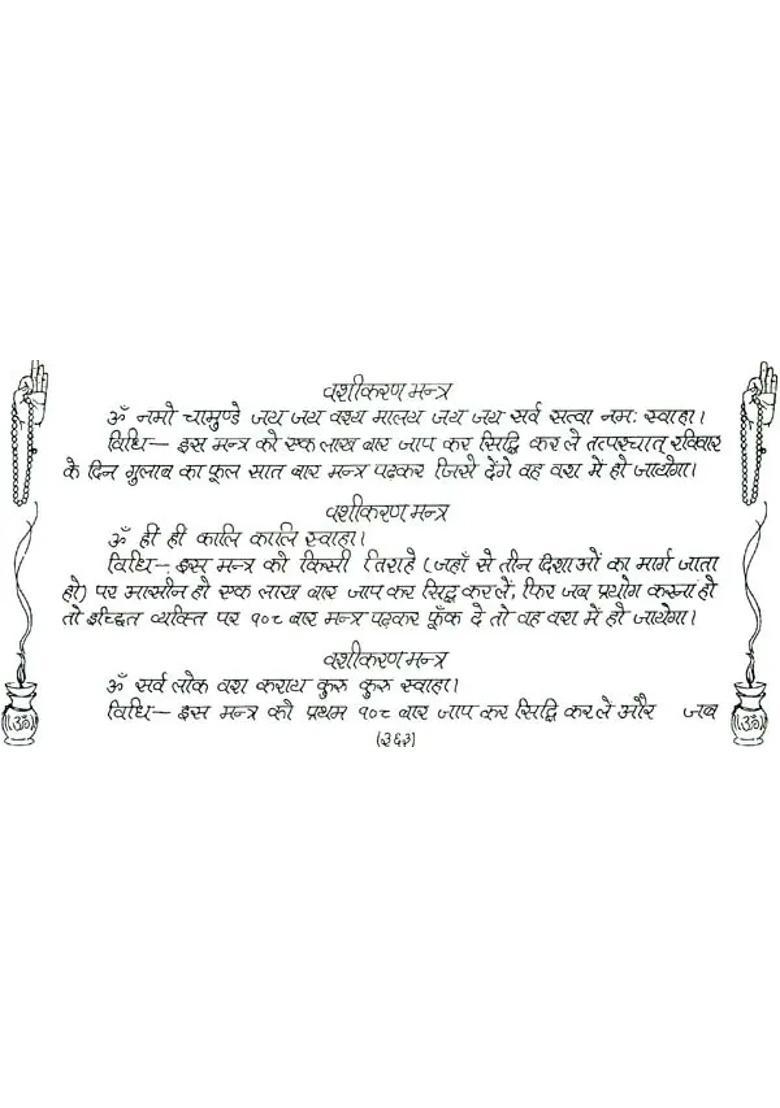 वशीकरण मन्त्र
ॐ नमो चामुण्डे जय जय वश्य मालय जय जय सर्व सत्वा नमः स्वाहा।
विधि— इस मन्त्र को एक लाख बार जाप कर सिद्धि कर ले तत्पश्चात् रविवार
के दिन गुलाब का फूल सात बार मन्त्र पढ़कर जिसे देंगे वह वश में हो जायेगा।
वशीकरण मन्त्र
ॐ ह्रीं ह्रीं कालि कालि स्वाहा।
विधि— इस मन्त्र को किसी तिराहे (जहाँ से तीन दिशाओं का मार्ग जाता
हो) पर आसीन हो एक लाख बार जाप कर सिद्ध कर लें, फिर जब प्रयोग करना हो
तो इच्छित व्यक्ति पर १०८ बार मन्त्र पढ़कर फूँक दे तो वह वश में हो जायेगा।
वशीकरण मन्त्र
ॐ सर्व लोक वश कराय कुरु कुरु स्वाहा।
विधि— इस मन्त्र को प्रथम १०८ बार जाप कर सिद्धि कर लें और जब
(३६३)
ॐ
ॐ